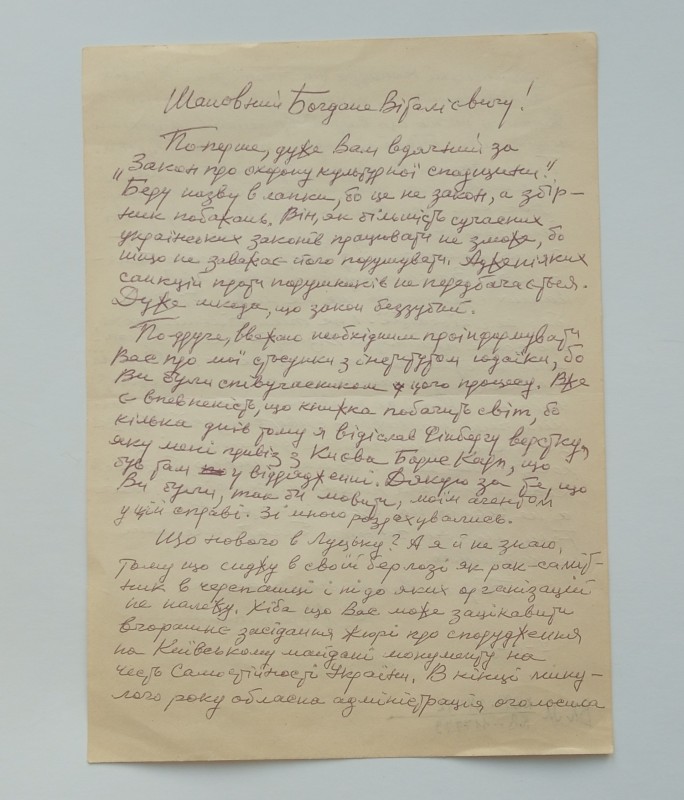 Шановний Богдане Віталієвичу!
По-перше, дуже Вам вдячний за
„Закон про охорону культурної спадщини".
Беру назву в лапки, бо це не закон, а збір-
ник побажань. Він, як більшість сучасних
українських законів працювати не зможе, бо
ніщо не заважає його порушувати. Адже ніяких
санкцій проти порушників не передбачається.
Дуже шкода, що закон беззубий.
По-друге, вважаю необхідним проінформувати
Вас про мої стосунки з інститутом юдаїки, бо
Ви були співучасником цього процесу. Вже
є впевненість, що книжка побачить світ, бо
кілька днів тому я відіслав Фінбергу верстку,
яку мені привіз з Києва Борис Карп, що
був там у відрядженні. Дякую за те, що
Ви були, так би мовити, моїм агентом
у цій справі. Зі мною розрахувались.
Що нового в Луцьку? А я й не знаю,
тому що сиджу в своїй берлозі як рак-самітник
ник в черепашці і ні до яких організацій
не належу. Хіба що Вас може зацікавити
вчорашнє засідання жюрі про спорудження
на Київському майдані монументу на
честь Самостійності України. В кінці мину-
лого року обласна адміністрація оголосила